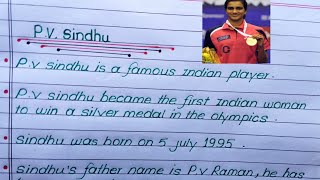 P.V. Sindhu
P.V sindhu is a famous Indian player.
P.V sindhu became the first Indian woman
to win a silver medal in the olympics.
Sindhu was born on 5 july 1995.
Sindhu's father name is P.V Raman, he has